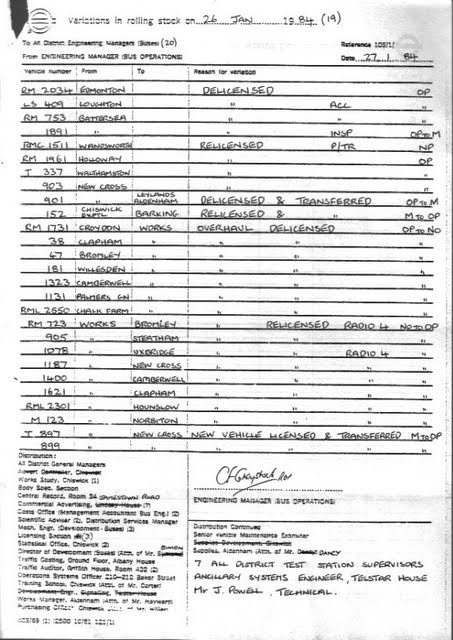 Variations in rolling stock on 26 JAN 1984 (19)
To All District Engineering Managers (Buses) (20) Reference 105/1/
From ENGINEERING MANAGER (BUS OPERATIONS) Date 27.1.84
Vehicle number From To Reason for variation
RM 2034 EDMONTON DELICENSED OP
LS 409 LOUGHTON " ACC "
RM 753 BATTERSEA " "
1891 " " INSP OP TO M
RMC 1511 WANDSWORTH RELICENSED P/TR NP
RM 1961 HOLLOWAY " OP
T 337 WALTHAMSTOW " "
903 NEW CROSS " "
901 " LEYLANDS ALDENHAM DELICENSED & TRANSFERRED OP TO M
152 CHISWICK EXPTL BARKING RELICENSED & " M TO OP
RM 1731 CROYDON WORKS OVERHAUL DELICENSED OP TO NO
38 CLAPHAM " " " "
47 BROMLEY " " " "
181 WILLESDEN " " " "
1323 CAMBERWELL " " " "
1131 PALMERS GN " " " "
RML 2550 CHALK FARM " " " "
RM 723 WORKS BROMLEY " RELICENSED RADIO 4 NO TO OP
905 " STREATHAM " " "
1078 " UXBRIDGE " " RADIO 4 "
1187 " NEW CROSS " " "
1400 " CAMBERWELL " " "
1621 " CLAPHAM " " "
RML 2301 " HOUNSLOW " " "
M 123 " NORBITON " " "
T 897 " NEW CROSS NEW VEHICLE LICENSED & TRANSFERRED M TO OP
899 " " " " " "
Distribution:
All District General Managers
Advert Controller, Chiswick
Works Study, Chiswick (1)
Body Spec. Section
Central Record, Room 34
Commercial Advertising,
Costs Office (Management Accountant Bus Eng.) (2)
Scientific Adviser (2), Distribution Services Manager
Mech. Engr. (Development - Buses) (3)
Licensing Section
Statistical Office, Chiswick (2)
Director of Development (Buses) (Attn. of Mr.
Traffic Costing, Ground Floor, Albany House
Traffic Auditor, Griffith House, Room 422 (2)
Operations Systems Office 210-212 Baker Street
Training School, Chiswick (Attn. of Mr. Carter)
Development Engr. Signalling, Telstar House
Works Manager, Aldenham (Attn. of Mr. Hayward)
Purchasing Officer
ENGINEERING MANAGER (BUS OPERATIONS)
Distribution Continued
Senior Vehicle Maintenance Examiner
Supplies Development, Chiswick
Supplies, Aldenham (Attn. of Mr. DANCY
7 ALL DISTRICT TEST STATION SUPERVISORS
ANCILLARY SYSTEMS ENGINEER, TELSTAR HOUSE
Mr J. POWELL, TECHNICAL.